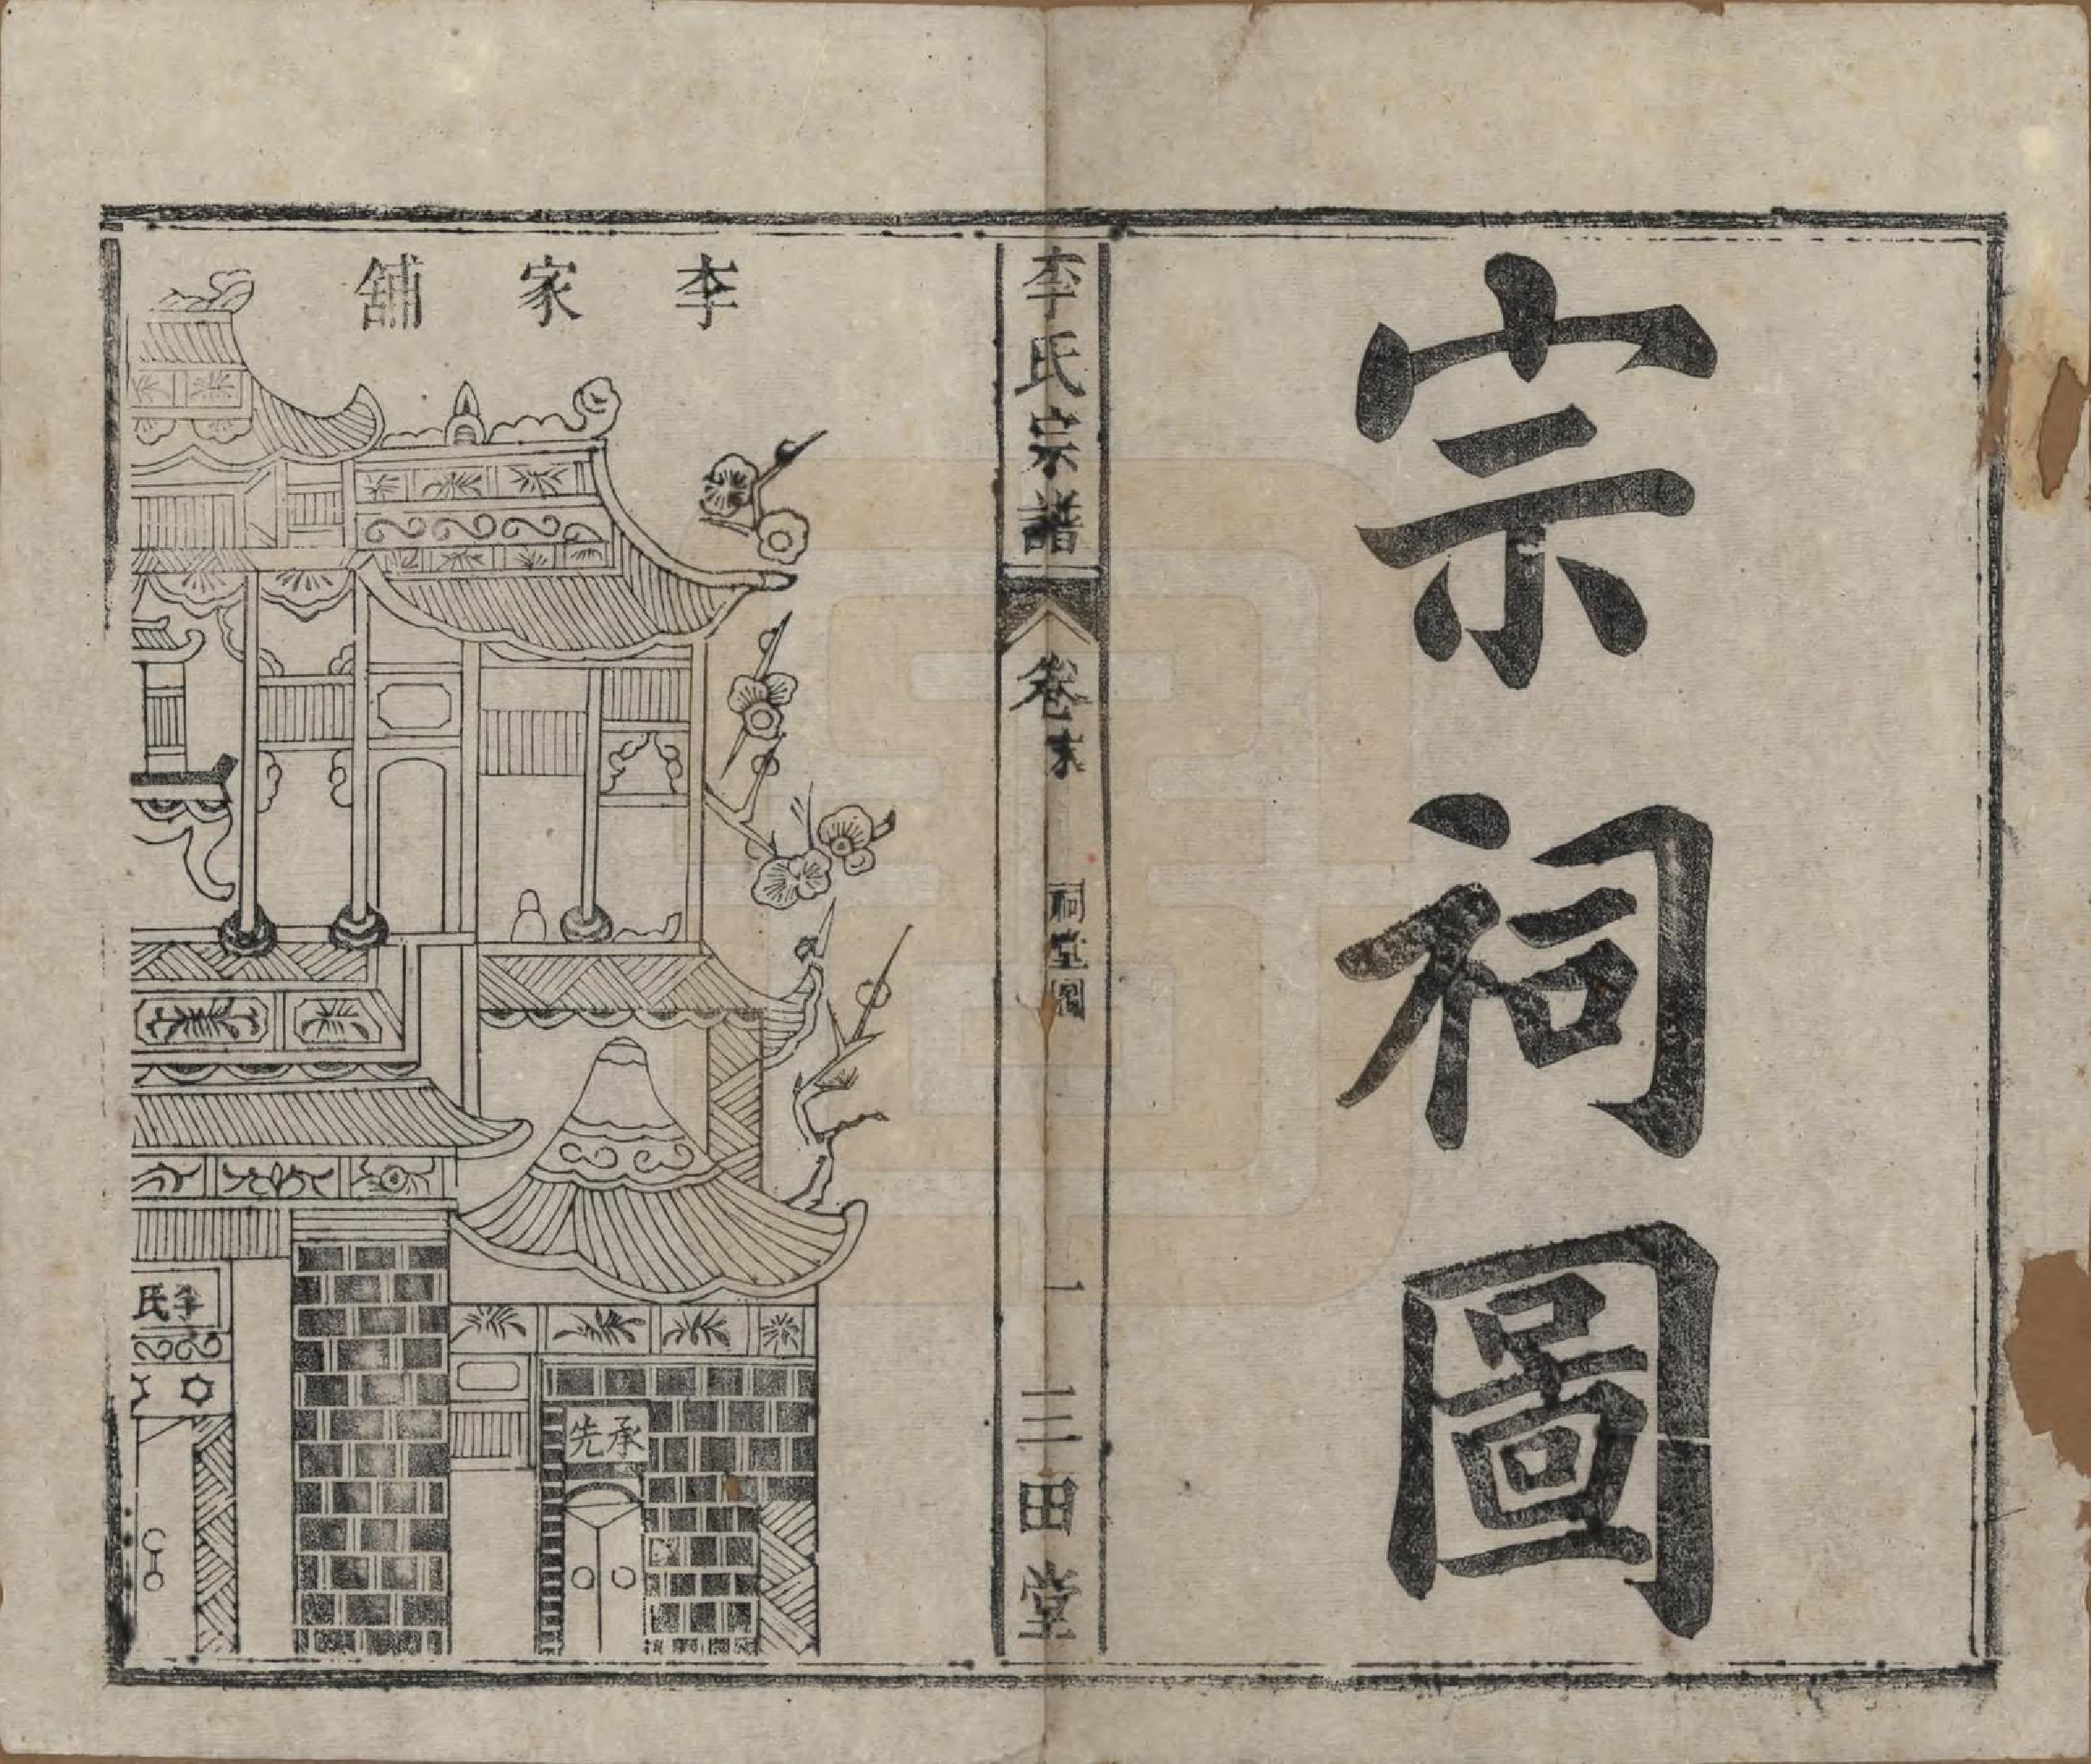 宗祠圖
李氏宗譜
卷末
祠堂圖
一
三田堂
李家舖
承先
李氏